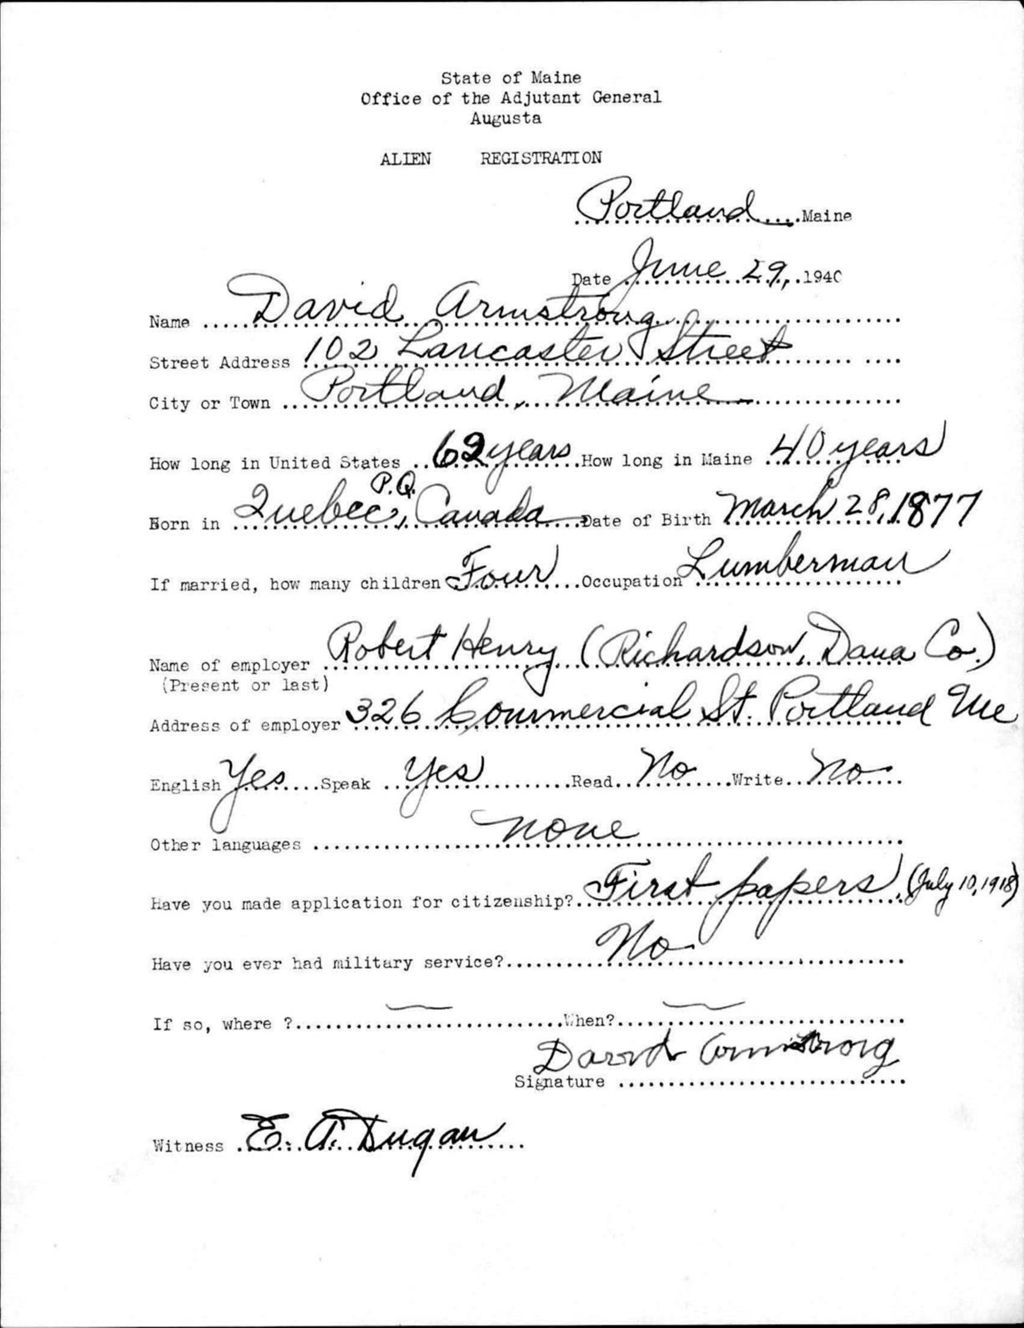 State of Maine
Office of the Adjutant General
Augusta
ALIEN REGISTRATION
Portland Maine
Date June 29, 1940
Name David Armstrong
Street Address 102 Lancaster Street
City or Town Portland, Maine
How long in United States 62 years How long in Maine 40 years
Born in Quebec, P.Q. Canada Date of Birth March 28, 1877
If married, how many children Four Occupation Lumberman
Name of employer Robert Henry (Richardson, Dana Co.)
(Present or last)
Address of employer 326 Commercial St. Portland Me
English Yes Speak Yes Read No Write No
Other languages none
Have you made application for citizenship? First papers (July 10, 1918)
Have you ever had military service? No
If so, where ? — When? —
David Armstrong
Signature
Witness E. A. Dugan